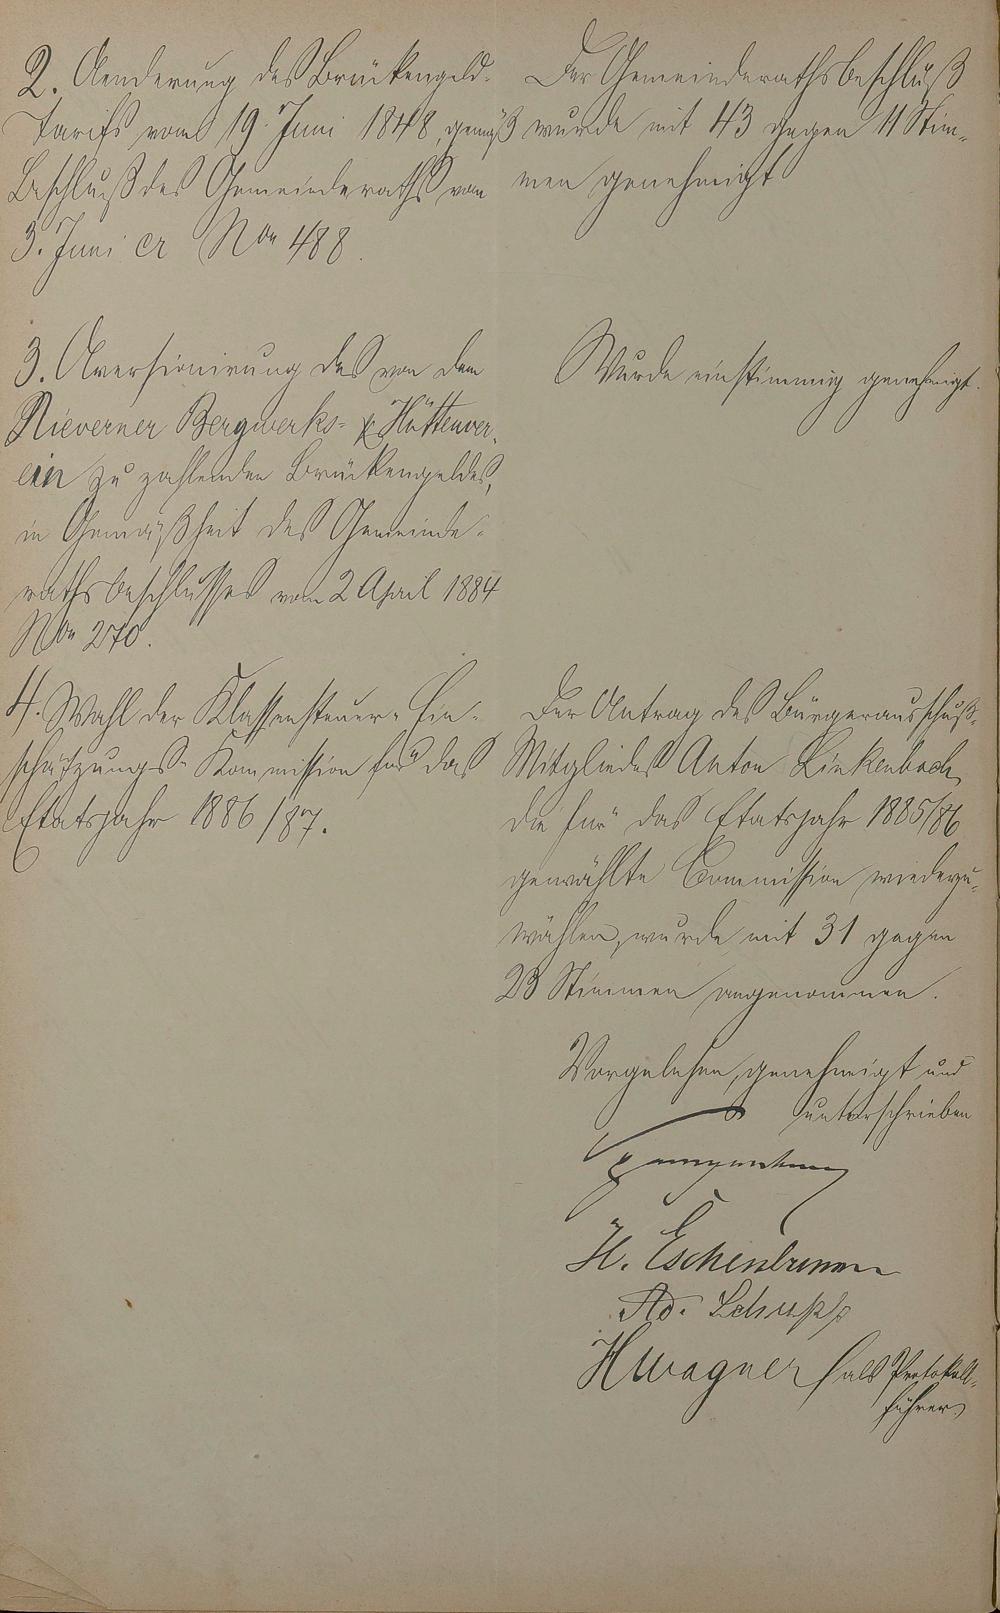 2. Aenderung des Brückengeld-
Tarifs vom 19. Juni 1848, gemäß
Beschluß des Gemeinderaths vom
3. Juni cr Non 488.
Der Gemeinderathsbeschluß
wurde mit 43 gegen 11 Stim-
men genehmigt
3. Aversionirung des von dem
Nieverner Bergwerks- & Hüttenver-
ein zu zahlenden Brückengeldes,
in Gemäßheit des Gemeinde-
rathsbeschlusses vom 2 April 1884
Non 270.
Wurde einstimmig genehmigt.
4. Wahl der Klassensteuer-Ein-
schätzungs-Kommission für das
Etatsjahr 1886/87.
Der Antrag des Bürgerausschuß-
Mitgliedes Anton Linkenbach,
die für das Etatsjahr 1885/86
gewählte Commission wiederzu-
wählen, wurde mit 31 gegen
23 Stimmen angenommen.
Vorgelesen, genehmigt und
unterschrieben
H. Eschenbrenner
Ad. Schupp
H Wagner als Protokoll-
führer